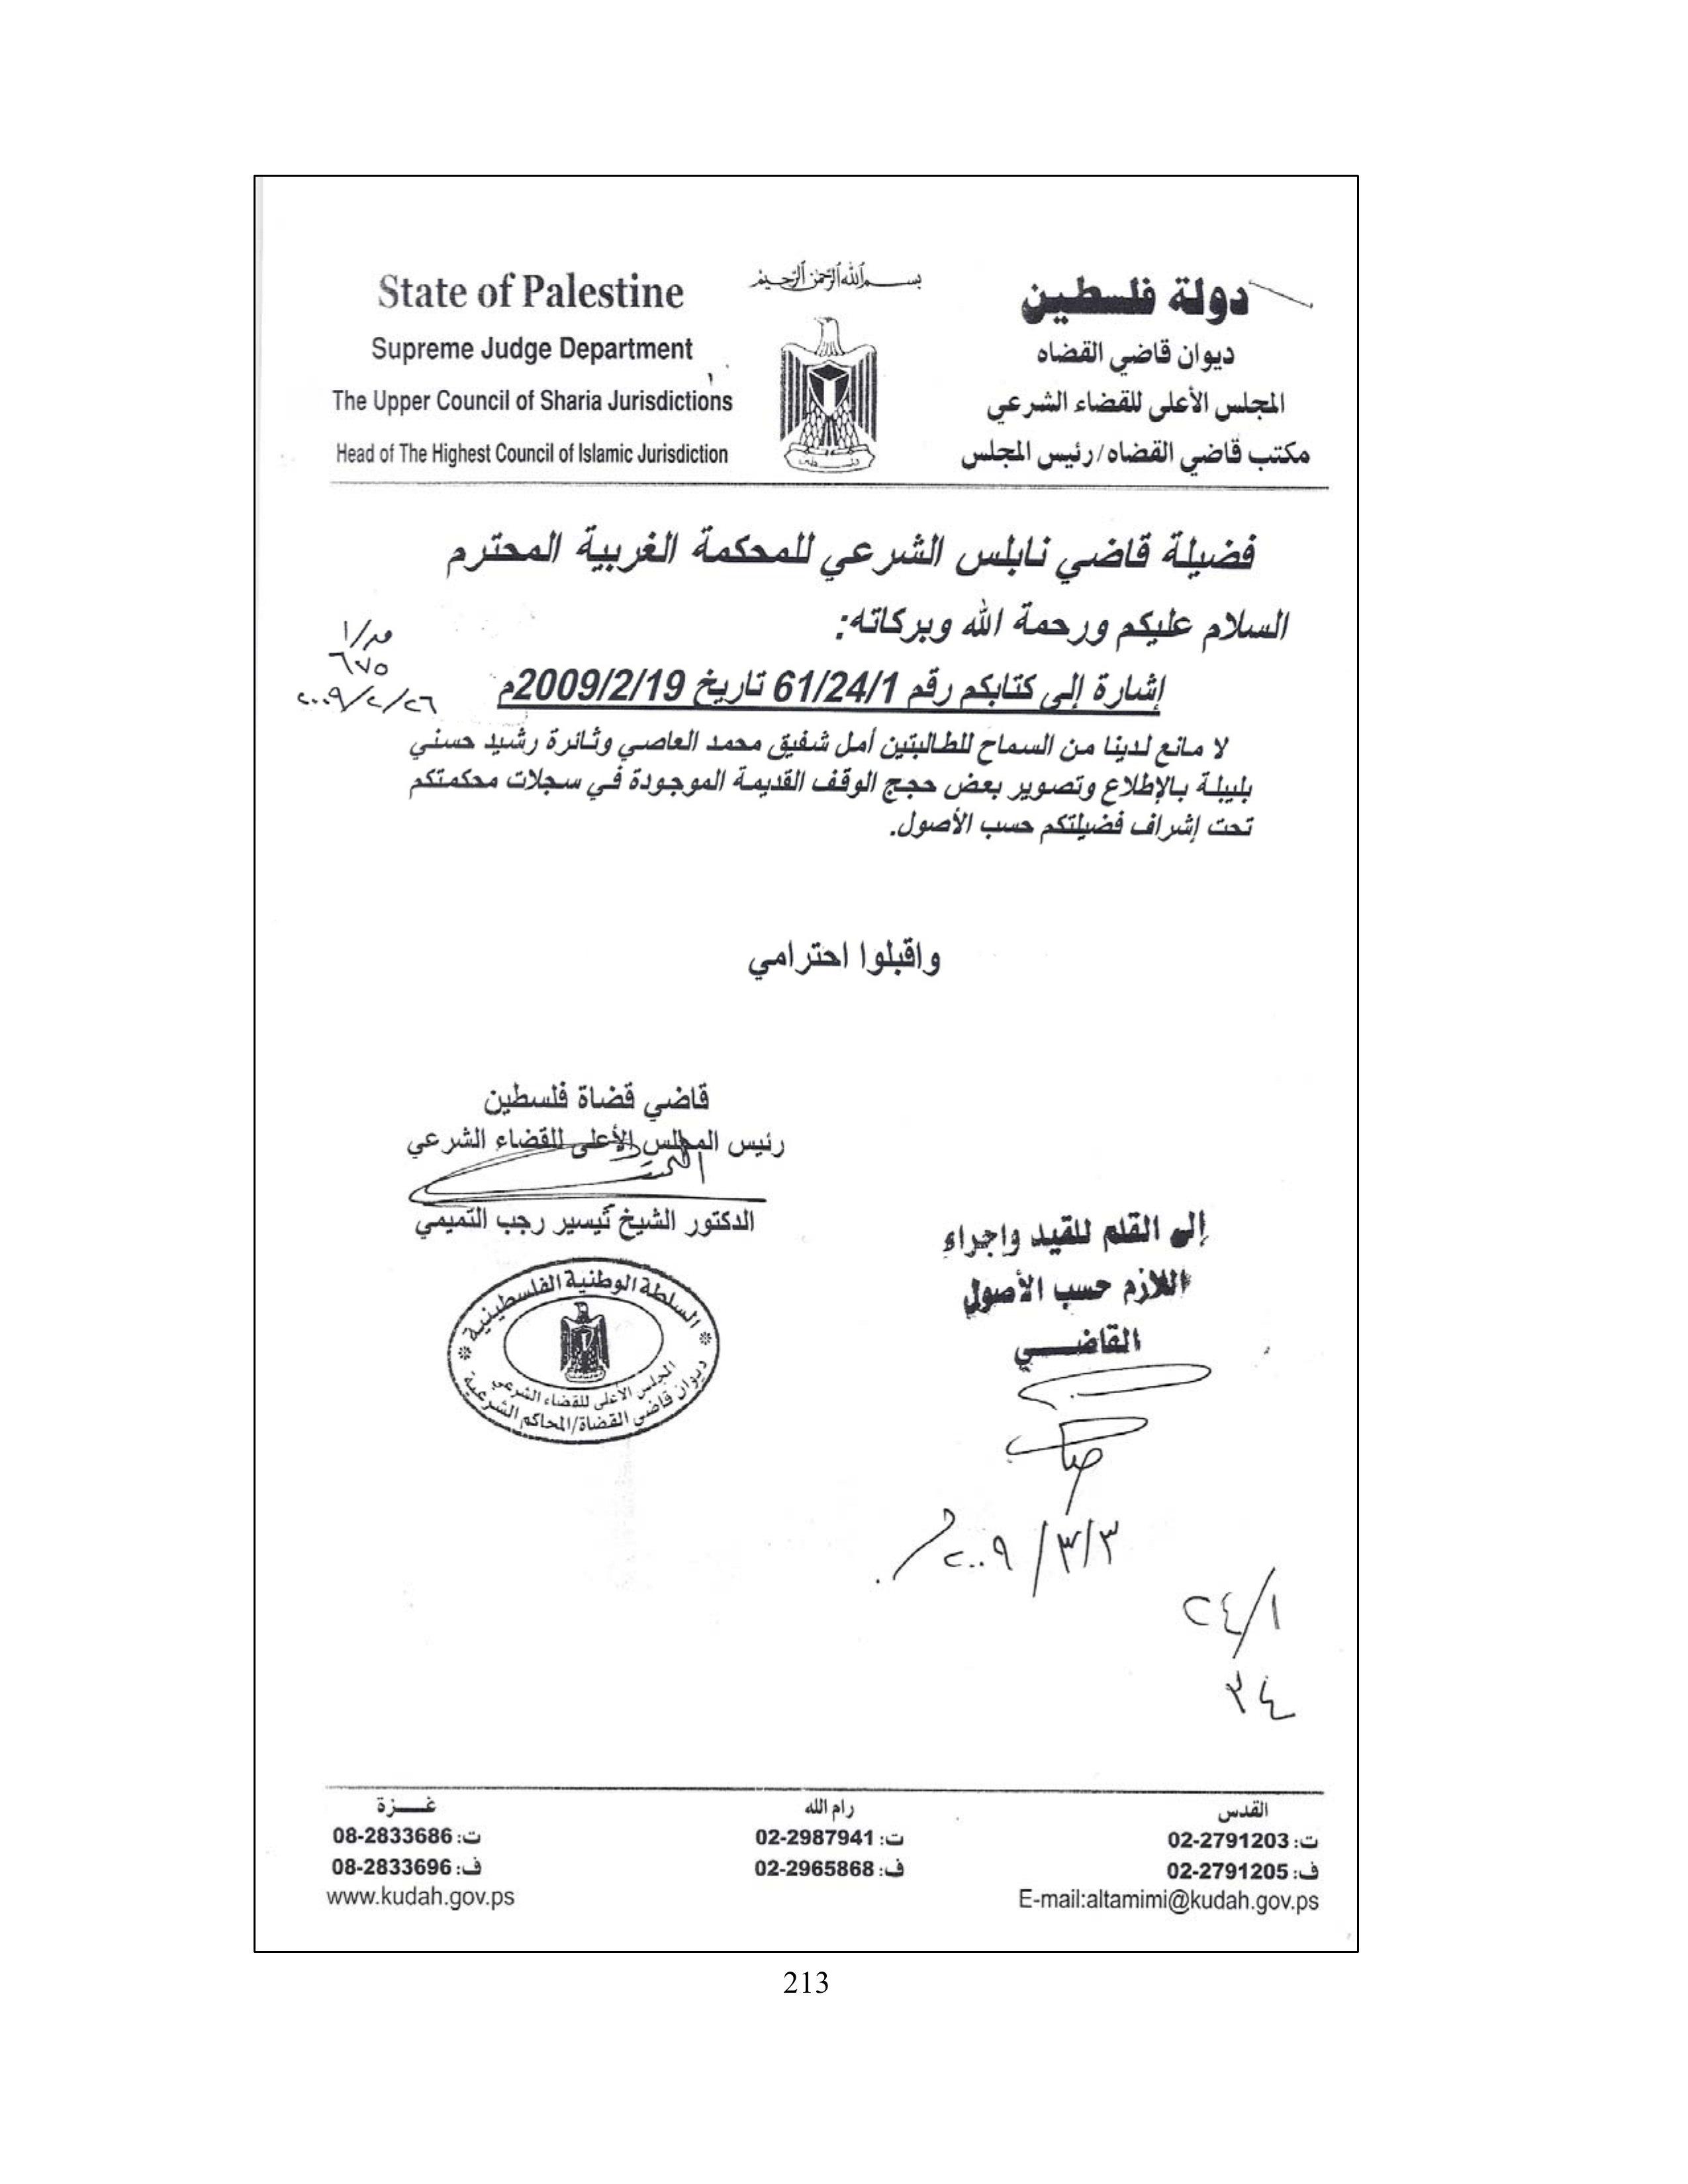 بسم الله الرحمن الرحيم
State of Palestine
Supreme Judge Department
The Upper Council of Sharia Jurisdictions
Head of The Highest Council of Islamic Jurisdiction
دولة فلسطين
ديوان قاضي القضاه
المجلس الأعلى للقضاء الشرعي
مكتب قاضي القضاه/رئيس المجلس
فلسطين
فضيلة قاضي نابلس الشرعي للمحكمة الغربية المحترم
السلام عليكم ورحمة الله وبركاته:
١/
٦٧٥
٢٠٠٩/٢/٢٦
إشارة إلى كتابكم رقم 61/24/1 تاريخ 2009/2/19م
لا مانع لدينا من السماح للطالبتين أمل شفيق محمد العاصي وثائرة رشيد حسني
بليبلة بالإطلاع وتصوير بعض حجج الوقف القديمة الموجودة في سجلات محكمتكم
تحت إشراف فضيلتكم حسب الأصول.
واقبلوا احترامي
قاضي قضاة فلسطين
رئيس المجلس الأعلى للقضاء الشرعي
الدكتور الشيخ تيسير رجب التميمي
السلطة الوطنية الفلسطينية
المجلس الأعلى للقضاء الشرعي
ديوان قاضي القضاة/المحاكم الشرعية
إلى القلم للقيد واجراء
اللازم حسب الأصول
القاضـــي
٢٠٠٩/٣/٣
٢٤/١
٣٤
القدس
ت: 02-2791203
ف: 02-2791205
E-mail:altamimi@kudah.gov.ps
رام الله
ت: 02-2987941
ف: 02-2965868
غـــزة
ت: 08-2833686
ف: 08-2833696
www.kudah.gov.ps
213